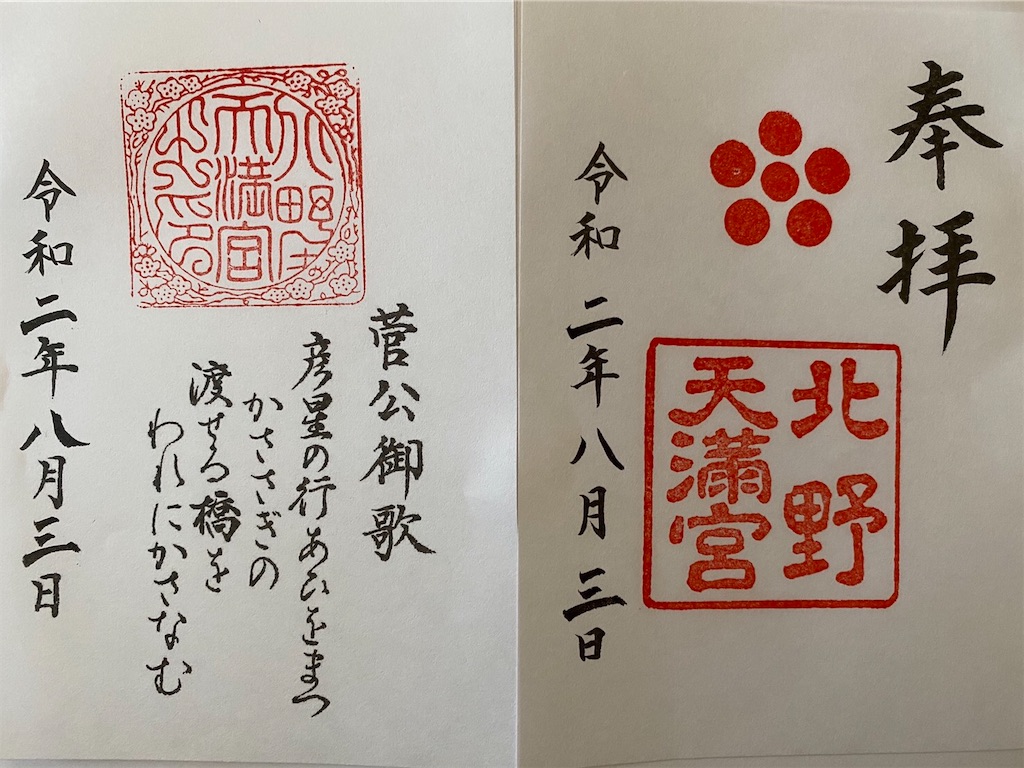 奉拝
北野
天満宮
令和二年八月三日
北野
天満宮
菅公御歌
彦星の行あひをまつ
かささぎの
渡せる橋を
われにかさなむ
令和二年八月三日